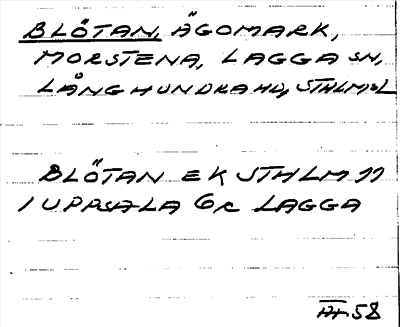 BLÖTAN, ÄGOMARK,
MORSTENA, LAGGA SN,
LÅNGHUNDRA HD, STHLMSL
BLÖTAN EK STHLM 77
/ UPPSALA 6c LAGGA
58